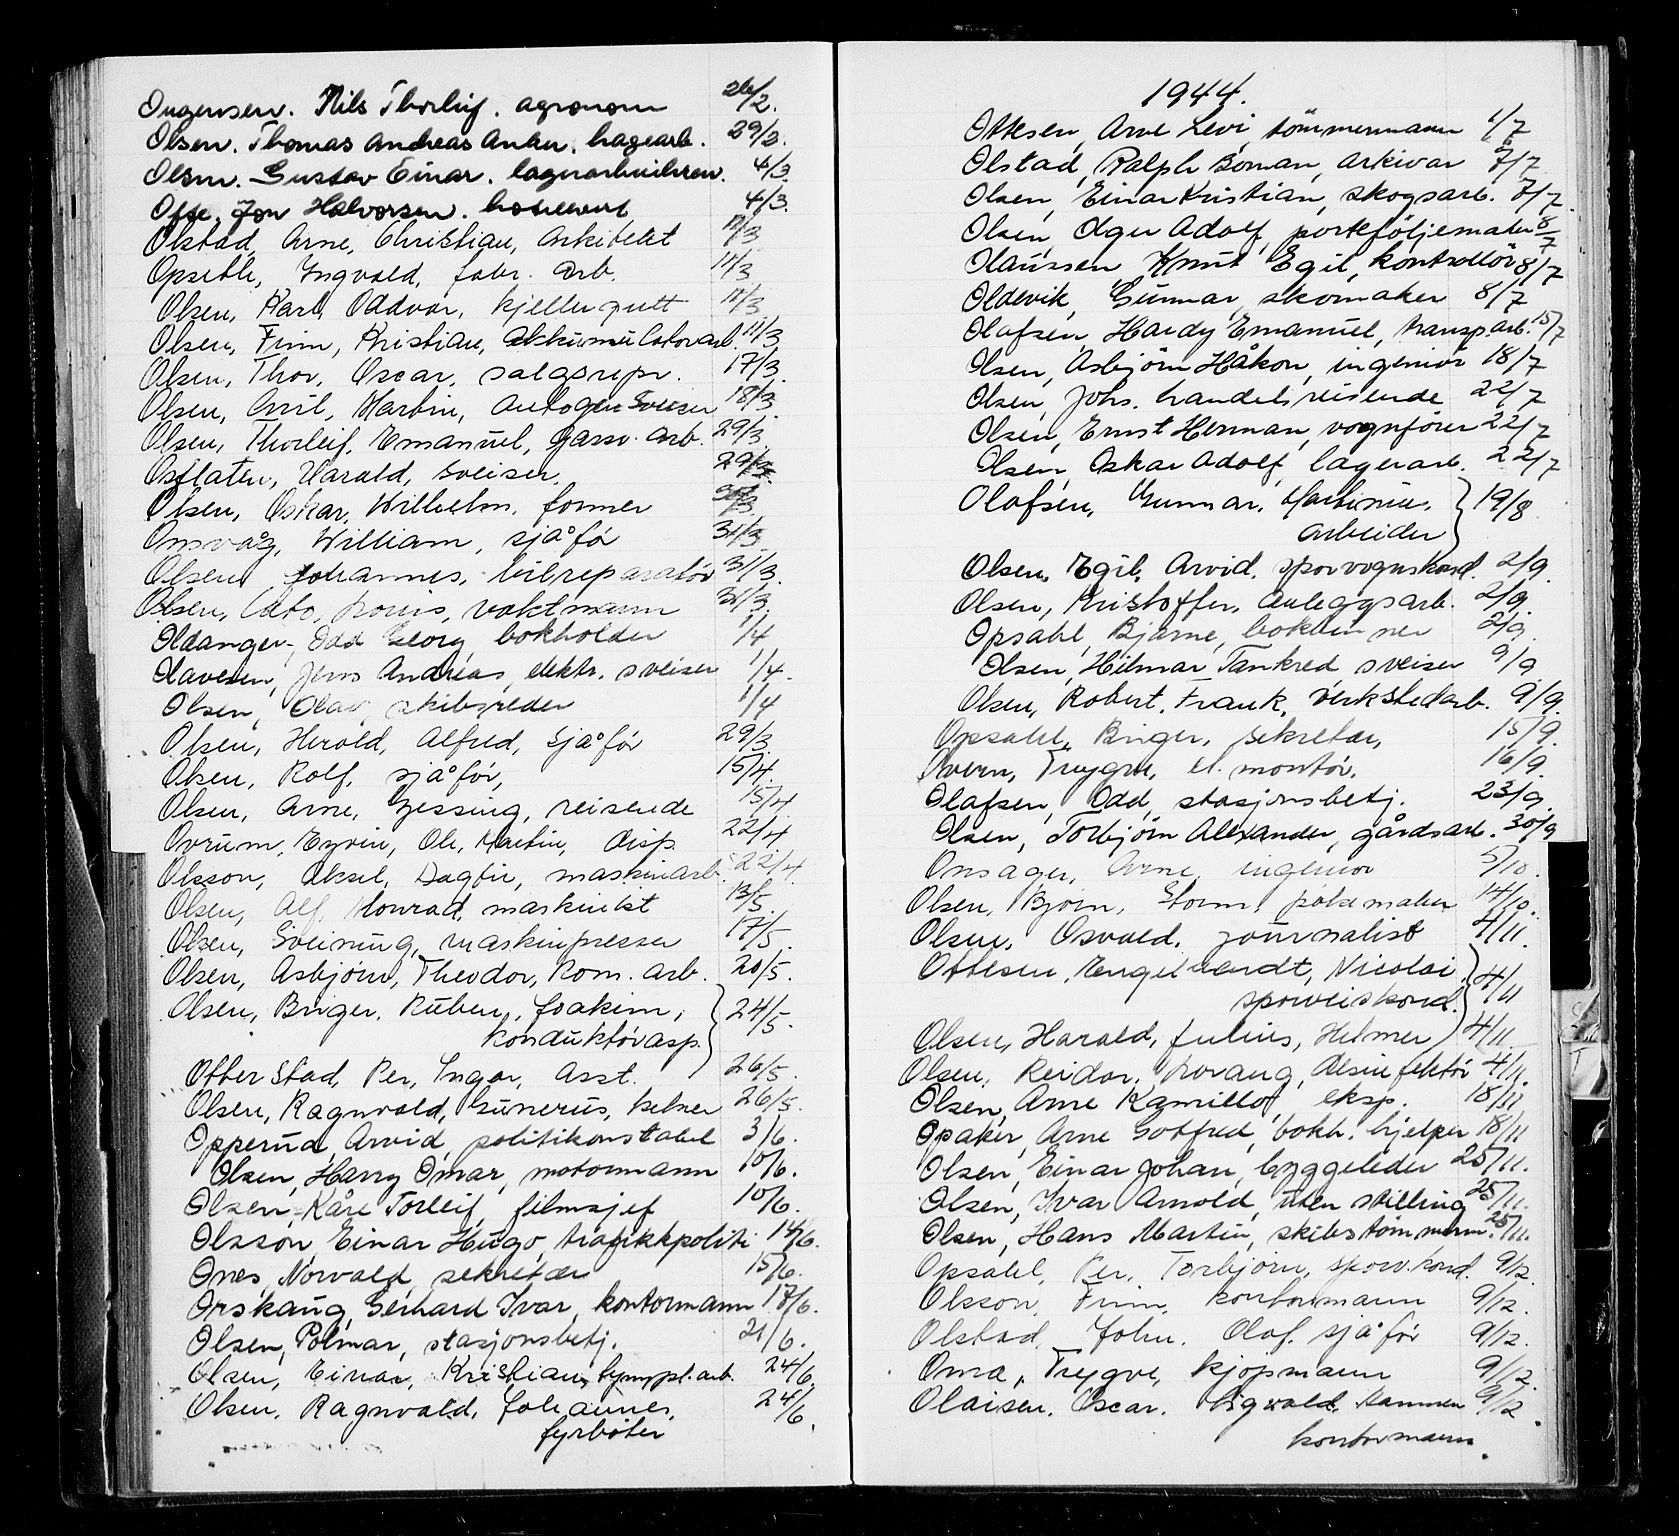 Nils Thorleif. agronom 26/2.
Olsen. Thomas Andreas Anker. hagearb. 29/2.
Olsen. Gustav Einar. 4/3.
Ofte. Jon Halvorsen. 4/3.
Olstad, Arne, Christian, Arkitekt 11/3
Opseth, Ingvald, fabr. Arb. 11/3
Olsen, Karl, Oddvar, kjellergutt 11/3
Olsen, Finn, Kristian, akkumulatorarb. 11/3
Olsen, Thor, Oscar, salgsrepr. 17/3.
Olsen, Martin, Autogen Sveiser 18/3.
Olsen, Thorleif, Emanuel, garv. arb. 29/3
Osflaten, Harald, sveiser, 29/3.
Olsen, Oskar, Wilhelm, former
Onsvåg, William, sjåfør 31/3
Olsen, Johannes, bilreparatør 31/3.
Olsen, Louis, vaktmann 31/3.
Oldanger, Odd Georg, bokholder 1/4
Olavesen, Jens Andreas, elektr. sveiser 1/4.
Olsen, Olav, skibsreder 1/4
Olsen, Herold, Alfred, sjåfør 29/3.
Olsen, Rolf, sjåfør, 15/4.
Olsen, Arne, Gessing, reisende 15/4
Ovrum, Eyvin, Ole, Martin, disp. 22/4.
Olsson, Aksel, Dagfin, maskinarb. 22/4.
Olsen, Alf, Konrad, maskinist 13/5.
Olsen, Sveinung, maskinpresser 17/5.
Olsen, Asbjørn, Theodor, kom. arb. 20/5.
Olsen, Birger, Ruben, Joakim, 24/5.
konduktørasp.
Otterstad, Per, Ingar, Asst. 26/5.
Olsen, Ragnvald, Gunerus, kelner 26/5.
Opperud, Arvid, politikonstabel 3/6.
Olsen, Harry Omar, motormann 10/6.
Olsen, Kåre Torleif, filmsjef 10/6.
Olsson, Einar Hugo, trafikkpoliti 14/6.
Ones, Norvald, sekretær 15/6.
Orskaug, Gerhard Ivar, kontormann 17/6.
Olsen, Polmar, stasjonsbetj. 21/6.
Olsen, Einar, Kristian, 24/6.
Olsen, Ragnvald, Johannes, 24/6.
fyrbøter
1944.
Ottesen, Arve Levi, tömmermann 1/7
Olstad, Ralph Boman, arkivar 7/7
Olsen, Einar Kristian, skogsarb. 7/7.
Olsen, Olger Adolf, porteföljemaker 8/7
Olaussen, Knut Egil, kontrollör 8/7
Oldevik, Gunnar, skomaker 8/7
Olafsen, Hardy Emanuel, transp.arb. 15/7
Olsen, Asbjörn Håkon, ingeniör 18/7
Olsen, Johs. handelsreisende 22/7
Olsen, Ernst Herman, vognförer 22/7
Olsen, Oskar Adolf, lagerarb. 22/7
Olafsen, Gunnar, Martinius, 19/8
arbeider
Olsen, Egil, Arvid, sporvognskond. 2/9.
Olsen, Kristoffer, Anleggsarb. 2/9.
Opsahl, Bjarne, bokbinner 2/9.
Olsen, Hilmar Tankred sveiser 9/9
Olsen, Robert, Frank, Verkstedarb. 9/9.
Opsahl, Birger, sekretær, 15/9.
Overn, Trygve, el. montør. 16/9.
Olafsen, Odd, stasjonsbetj. 23/9.
Olsen, Torbjörn Alexander, gårdsarb. 30/9
Onsager, Arne, ingeniør 5/10.
Olsen, Bjørn, Storm, pølsemaker 14/10.
Olsen, Osvald, journalist 4/11.
Ottesen, Engelbrendt, Nicolai 4/11
sporveiskond.
Olsen, Harald, Julius, Helmer 4/11
Olsen, Reidar, Korang, desinfektør 4/11.
Olsen, Arne Kamillo, eksp. 18/11
Opaker, Arne Gotfred, bokh. hjelper 18/11
Olsen, Einar Johan, byggeleder 25/11.
Olsen, Ivar Arnold, uten stilling 25/11.
Olsen, Hans Martin, skibstömmerm. 25/11.
Opsahl, Per, Torbjørn, sporv.kond. 9/12.
Olsson, Finn, kontormann 9/12.
Olstad, John, Olaf, sjåfør 9/12.
Oma, Trygve, kjøpmann 9/12.
Olaisen, Oscar, Sigvald, Hammer 9/12
kontormann.